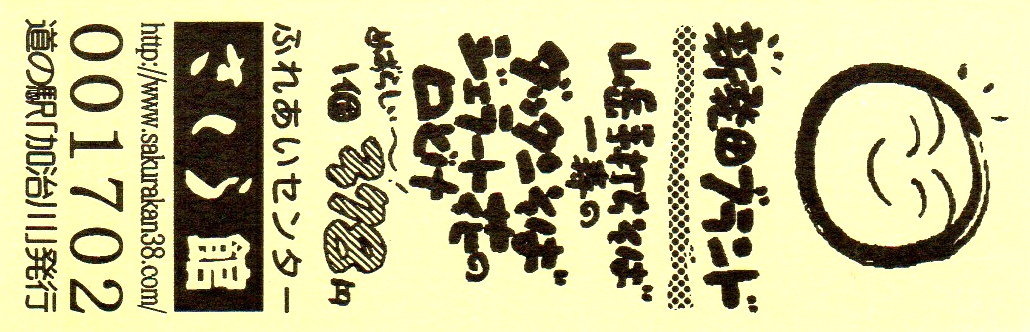 新発田ブランド
一寿の
ダッタンそば
ジェラート
口どけ
めずらしい〜
1個
円
ふれあいセンター
さくら館
http://www.sakurakan38.com/
001702
道の駅「加治川」発行